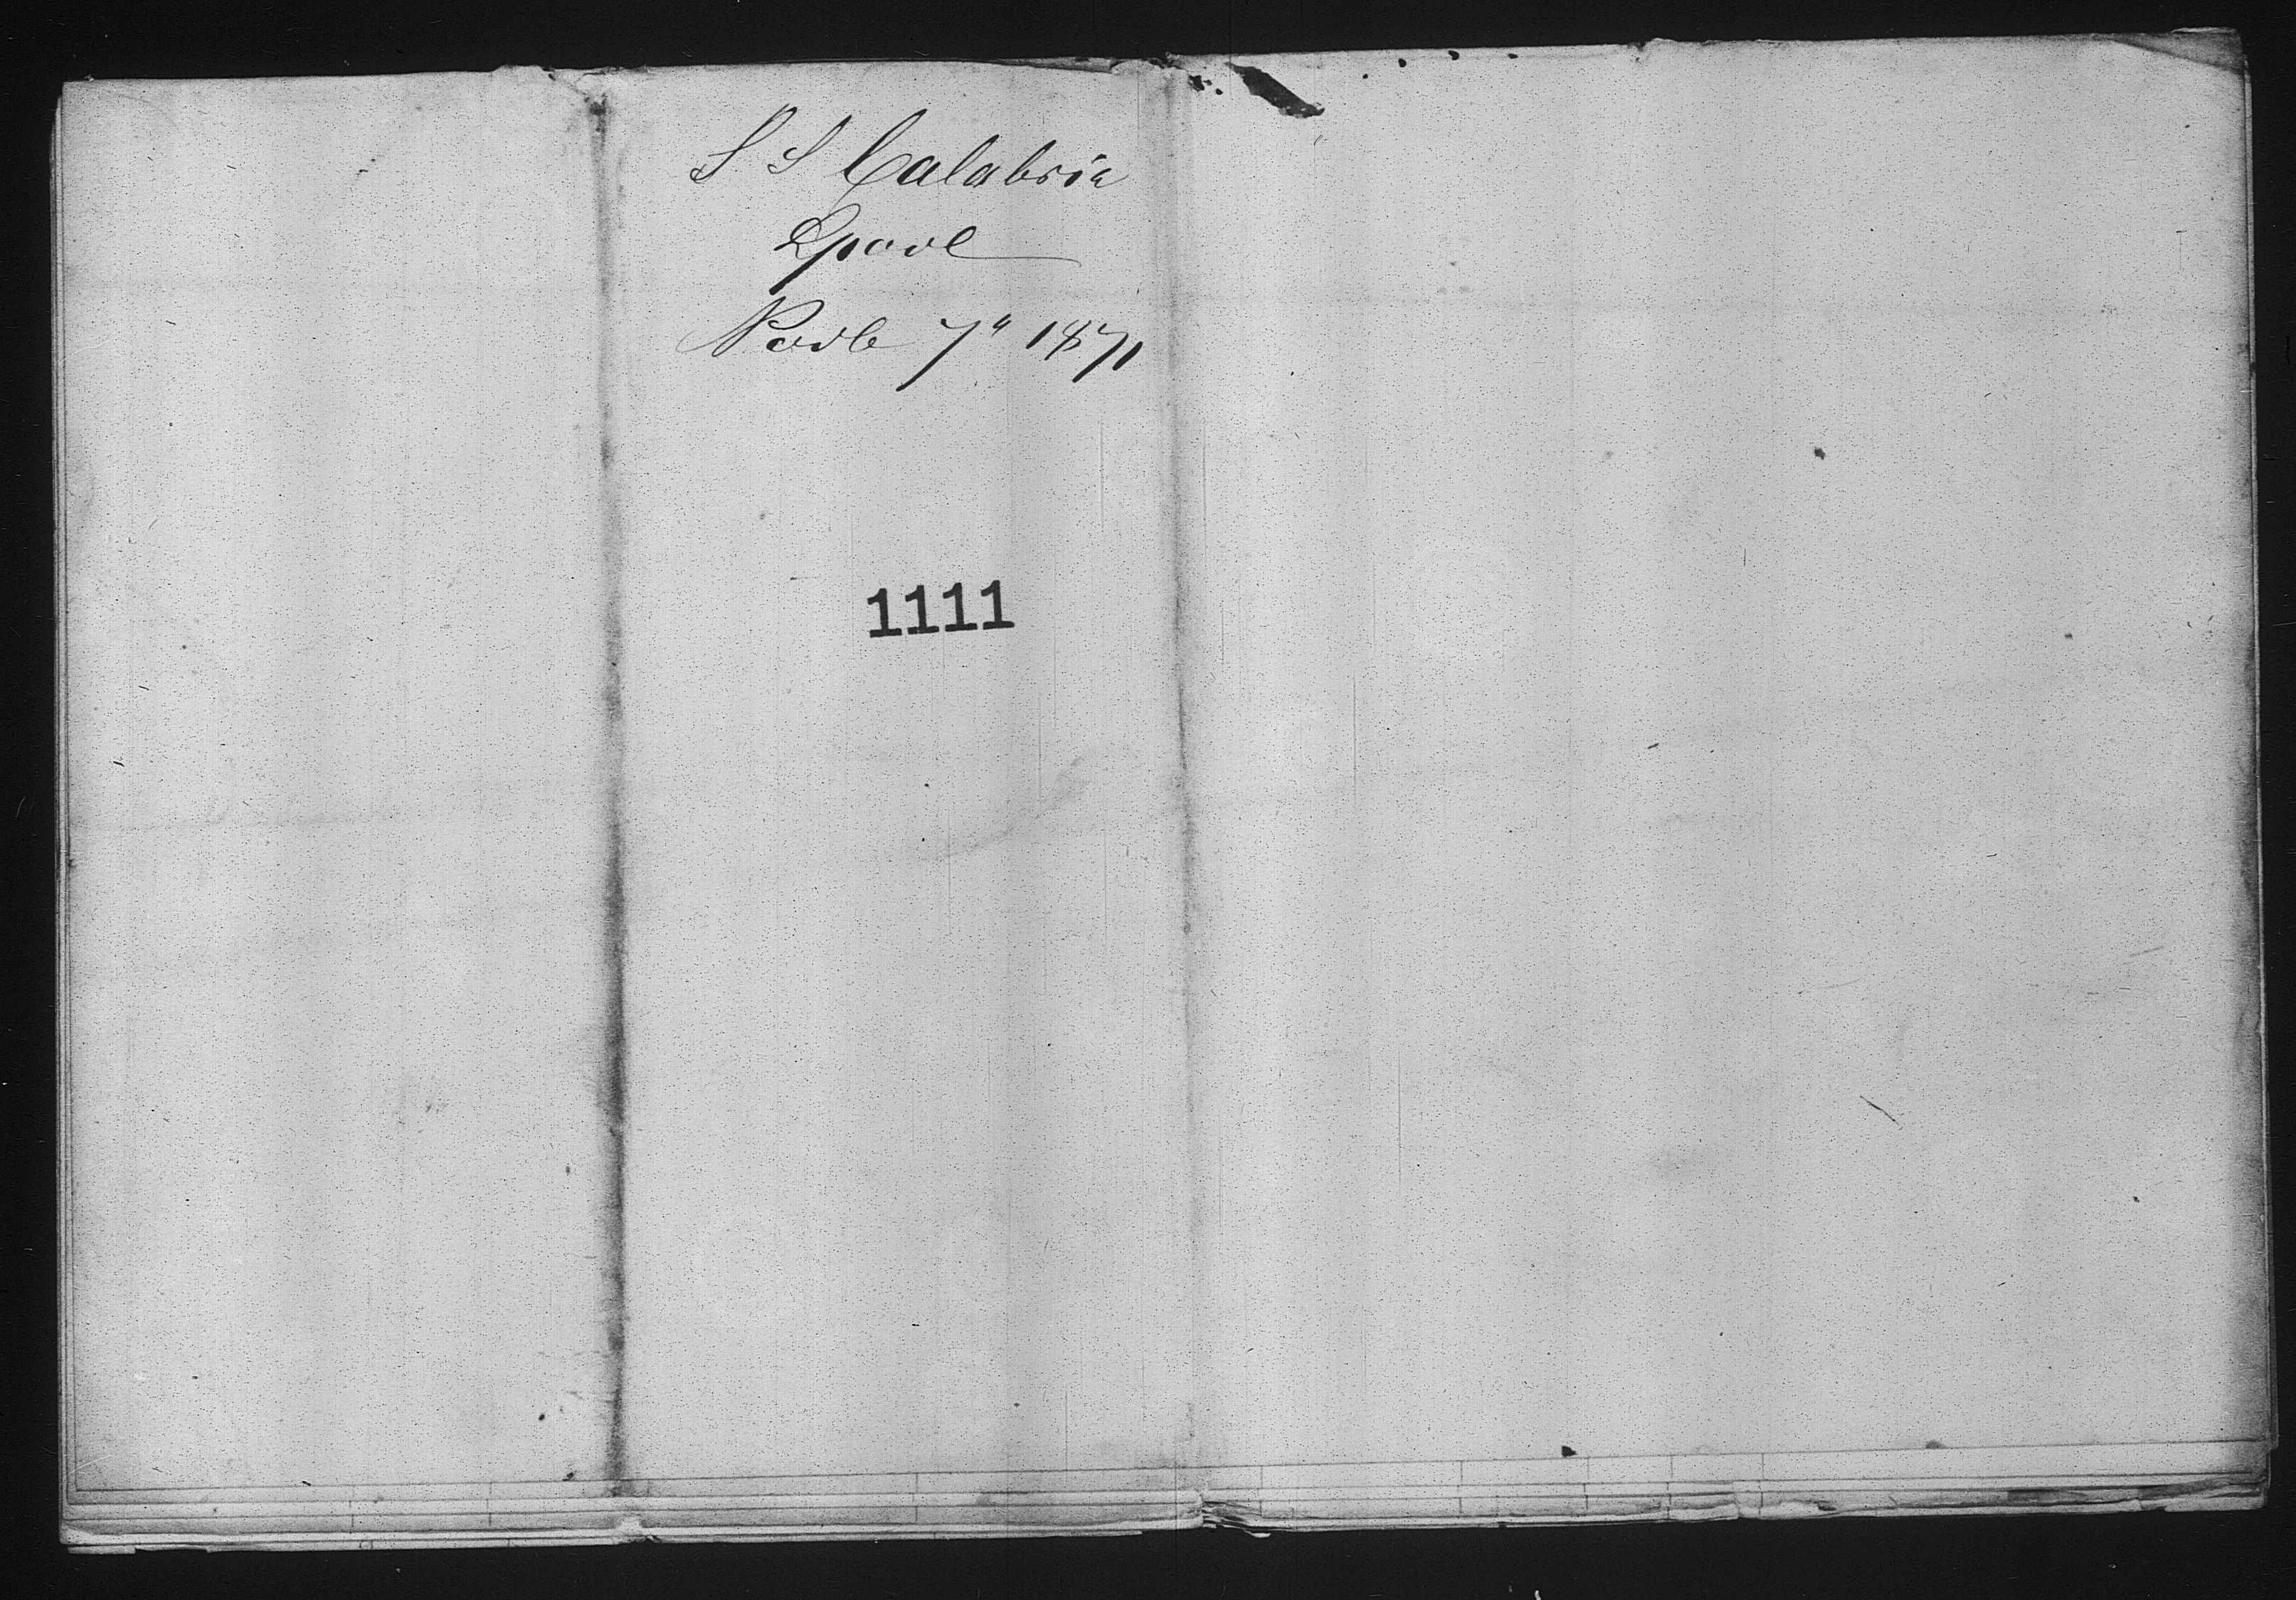 S S Calabria
Lpool
Novbr 7" 1871
1111